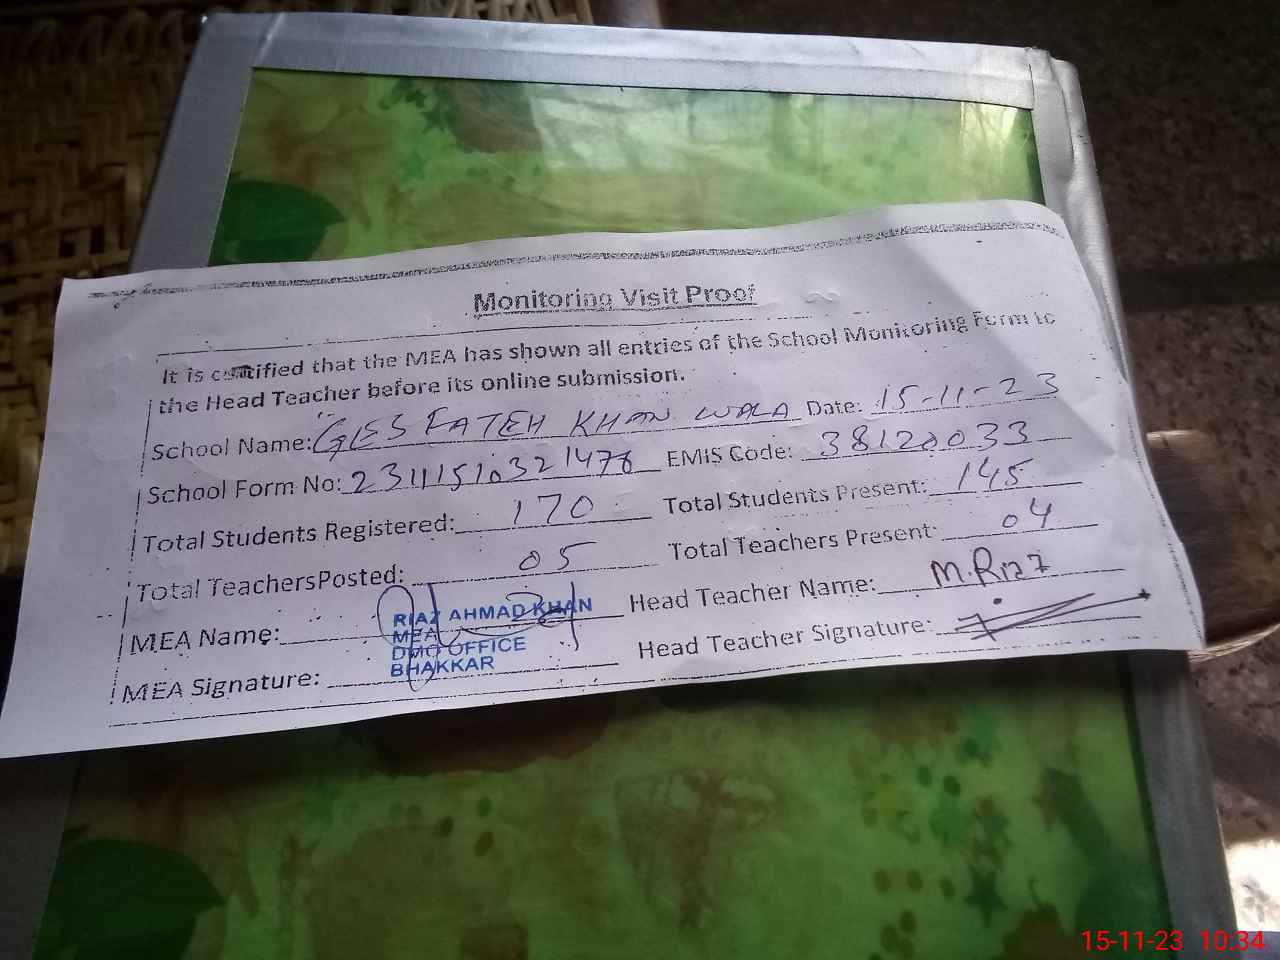 Monitoring Visit Proof
It is certified that the MEA has shown all entries of the School Monitoring Form to
the Head Teacher before its online submission.
School Name: GES FATEH KHAN WALA Date: 15-11-23
School Form No: 23111510321476 EMIS Code: 38120033
Total Students Registered: 170 Total Students Present: 145
Total TeachersPosted: 05 Total Teachers Present: 04
MEA Name: RIAZ AHMAD KHAN Head Teacher Name: M. Riaz
MEA
DMO OFFICE
BHAKKAR
MEA Signature: Head Teacher Signature:
15-11-23 10:34